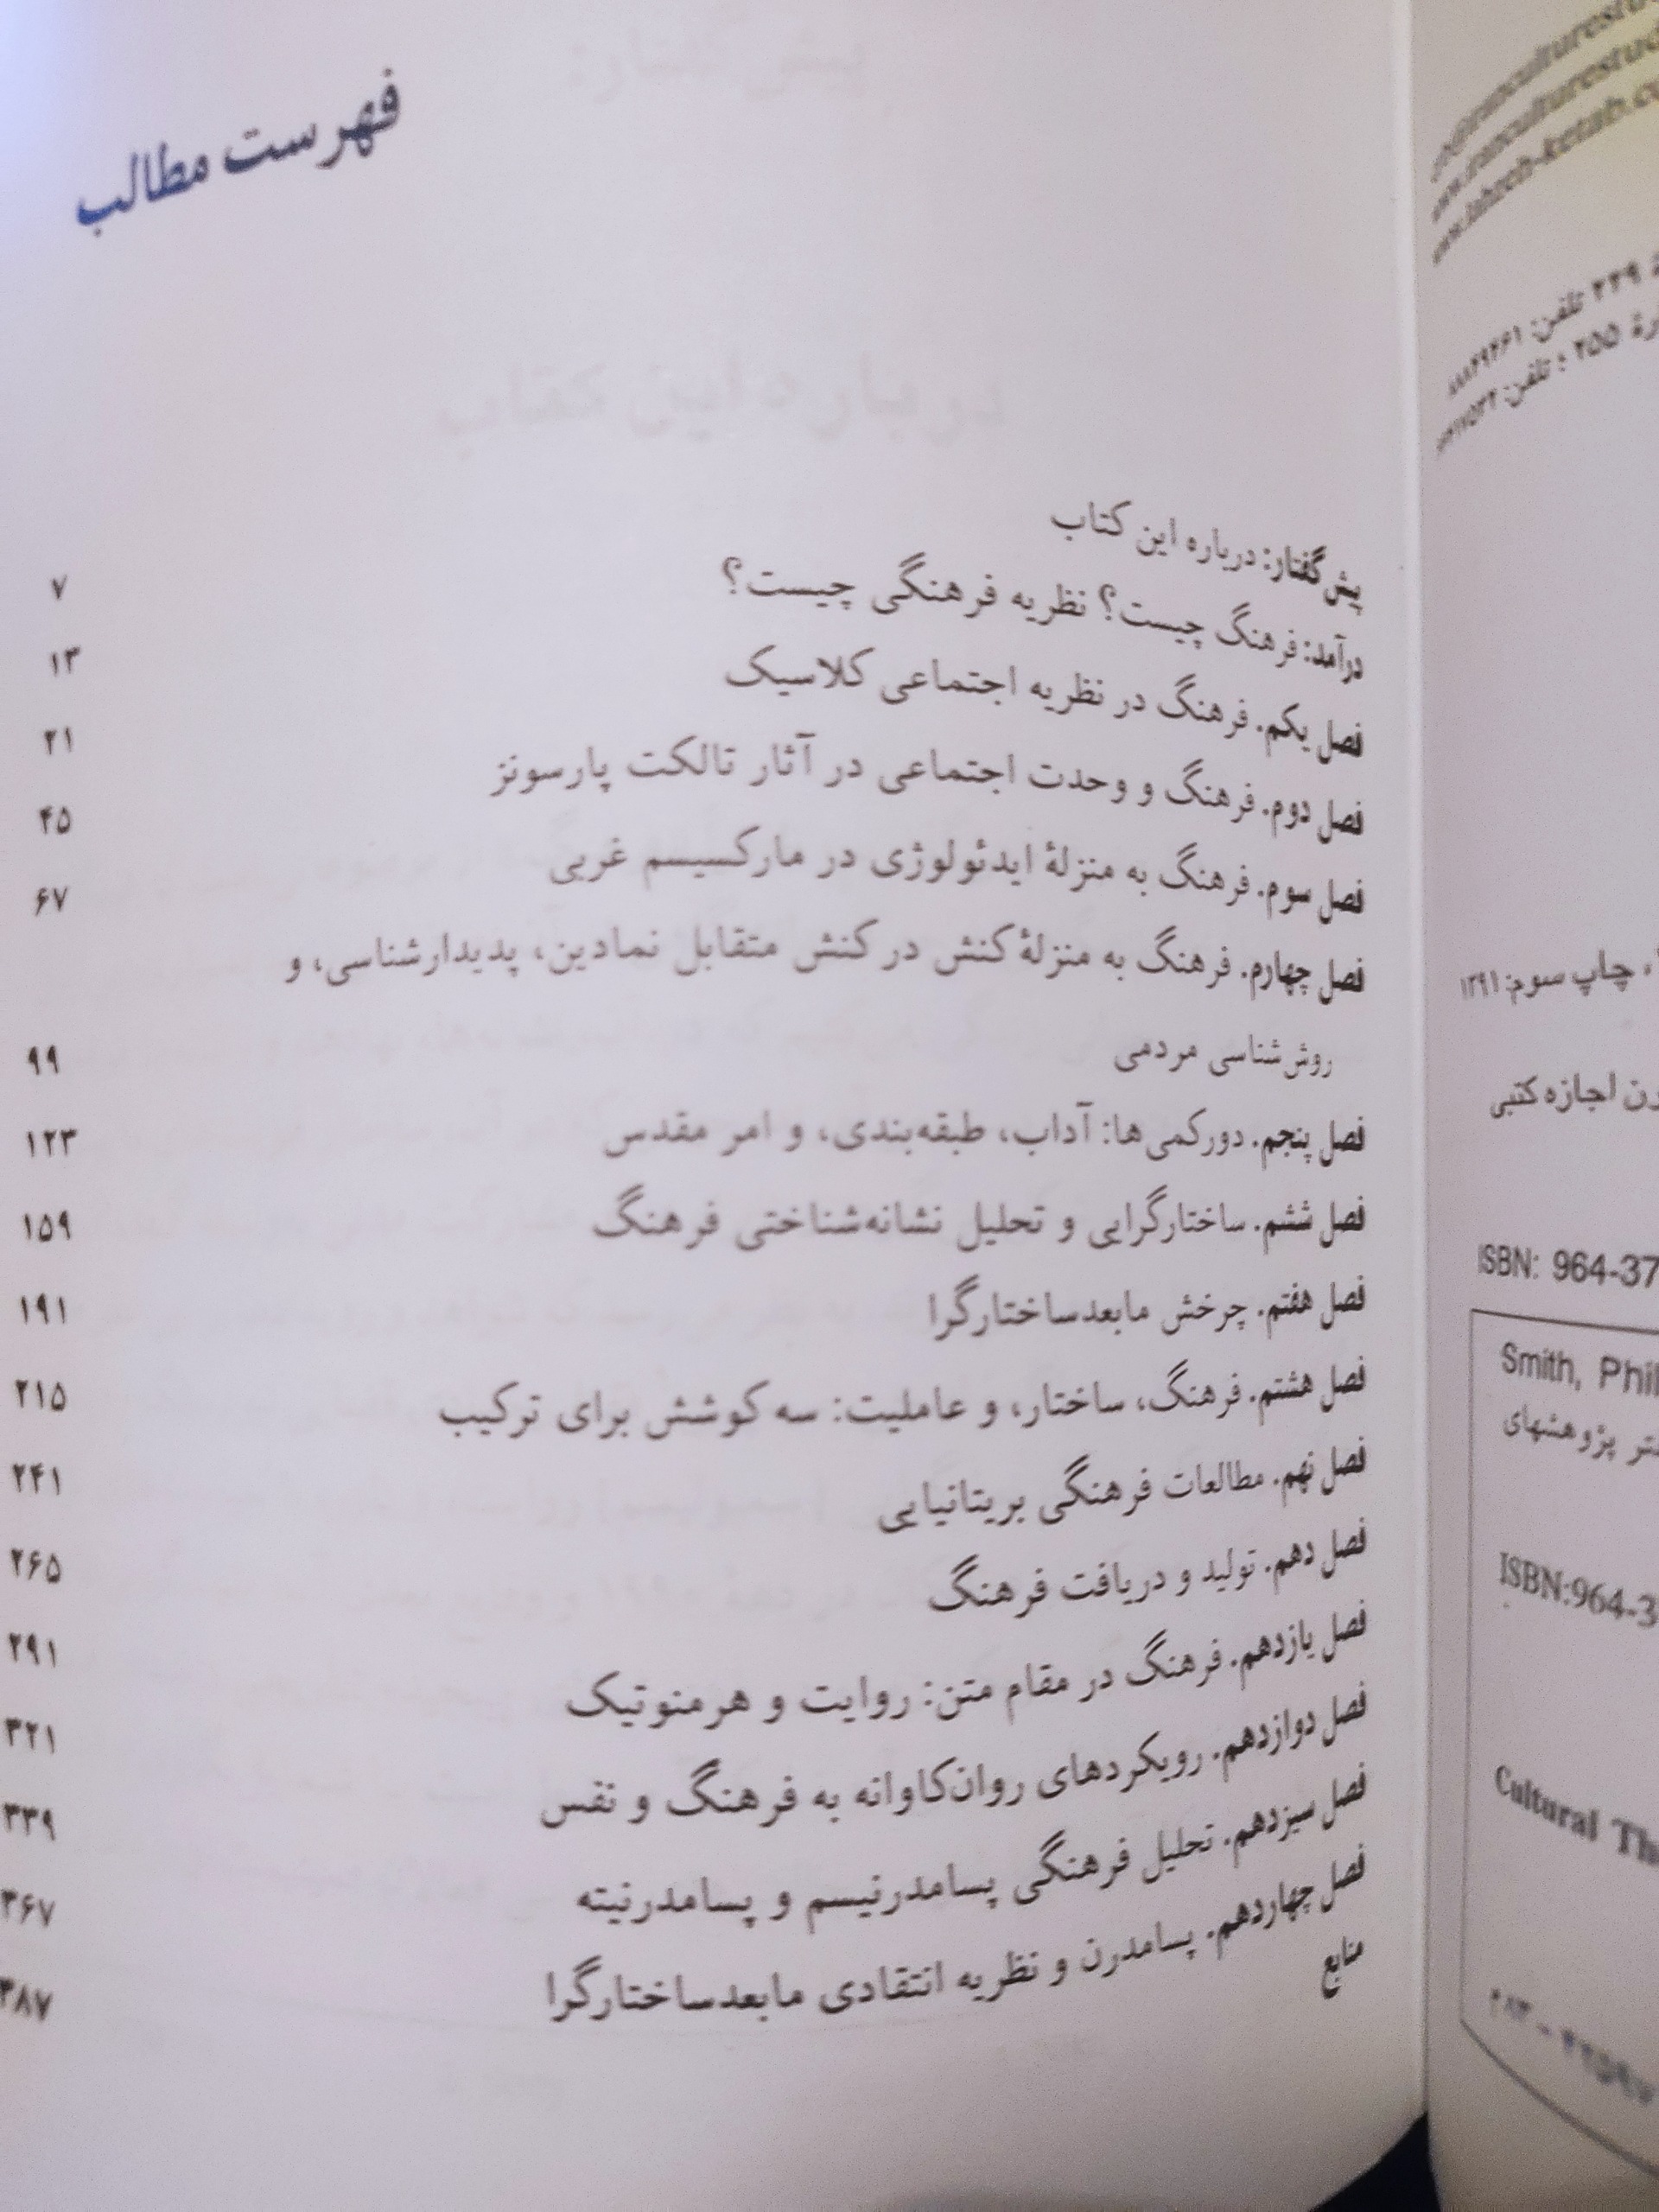 فهرست مطالب
پیش‌گفتار: درباره این کتاب ۷
درآمد: فرهنگ چیست؟ نظریه فرهنگی چیست؟ ۱۳
فصل یکم. فرهنگ در نظریه اجتماعی کلاسیک ۲۱
فصل دوم. فرهنگ و وحدت اجتماعی در آثار تالکت پارسونز ۴۵
فصل سوم. فرهنگ به منزلهٔ ایدئولوژی در مارکسیسم غربی ۶۷
فصل چهارم. فرهنگ به منزلهٔ کنش در کنش متقابل نمادین، پدیدارشناسی، و
روش‌شناسی مردمی ۹۹
فصل پنجم. دورکمی‌ها: آداب، طبقه‌بندی، و امر مقدس ۱۲۳
فصل ششم. ساختارگرایی و تحلیل نشانه‌شناختی فرهنگ ۱۵۹
فصل هفتم. چرخش مابعدساختارگرا ۱۹۱
فصل هشتم. فرهنگ، ساختار، و عاملیت: سه کوشش برای ترکیب ۲۱۵
فصل نهم. مطالعات فرهنگی بریتانیایی ۲۴۱
فصل دهم. تولید و دریافت فرهنگ ۲۶۵
فصل یازدهم. فرهنگ در مقام متن: روایت و هرمنوتیک ۲۹۱
فصل دوازدهم. رویکردهای روان‌کاوانه به فرهنگ و نفس ۳۲۱
فصل سیزدهم. تحلیل فرهنگی پسامدرنیسم و پسامدرنیته ۳۳۹
فصل چهاردهم. پسامدرن و نظریه انتقادی مابعدساختارگرا ۳۶۷
منابع ۳۸۷
۲۴۹ تلفن:
۲۵۵ ؛ تلفن:
چاپ سوم: ۱۳۹۱
اجازه کتبی
ISBN: 964-37
Smith, Phil
پژوهشهای
ISBN:964-3
Cultural Th